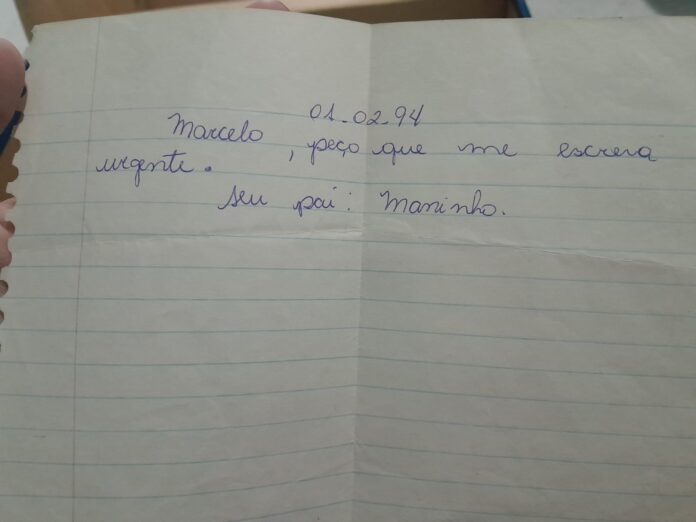 01-02-94
Marcelo, peço que me escreva
urgente.
seu pai: Maninho.